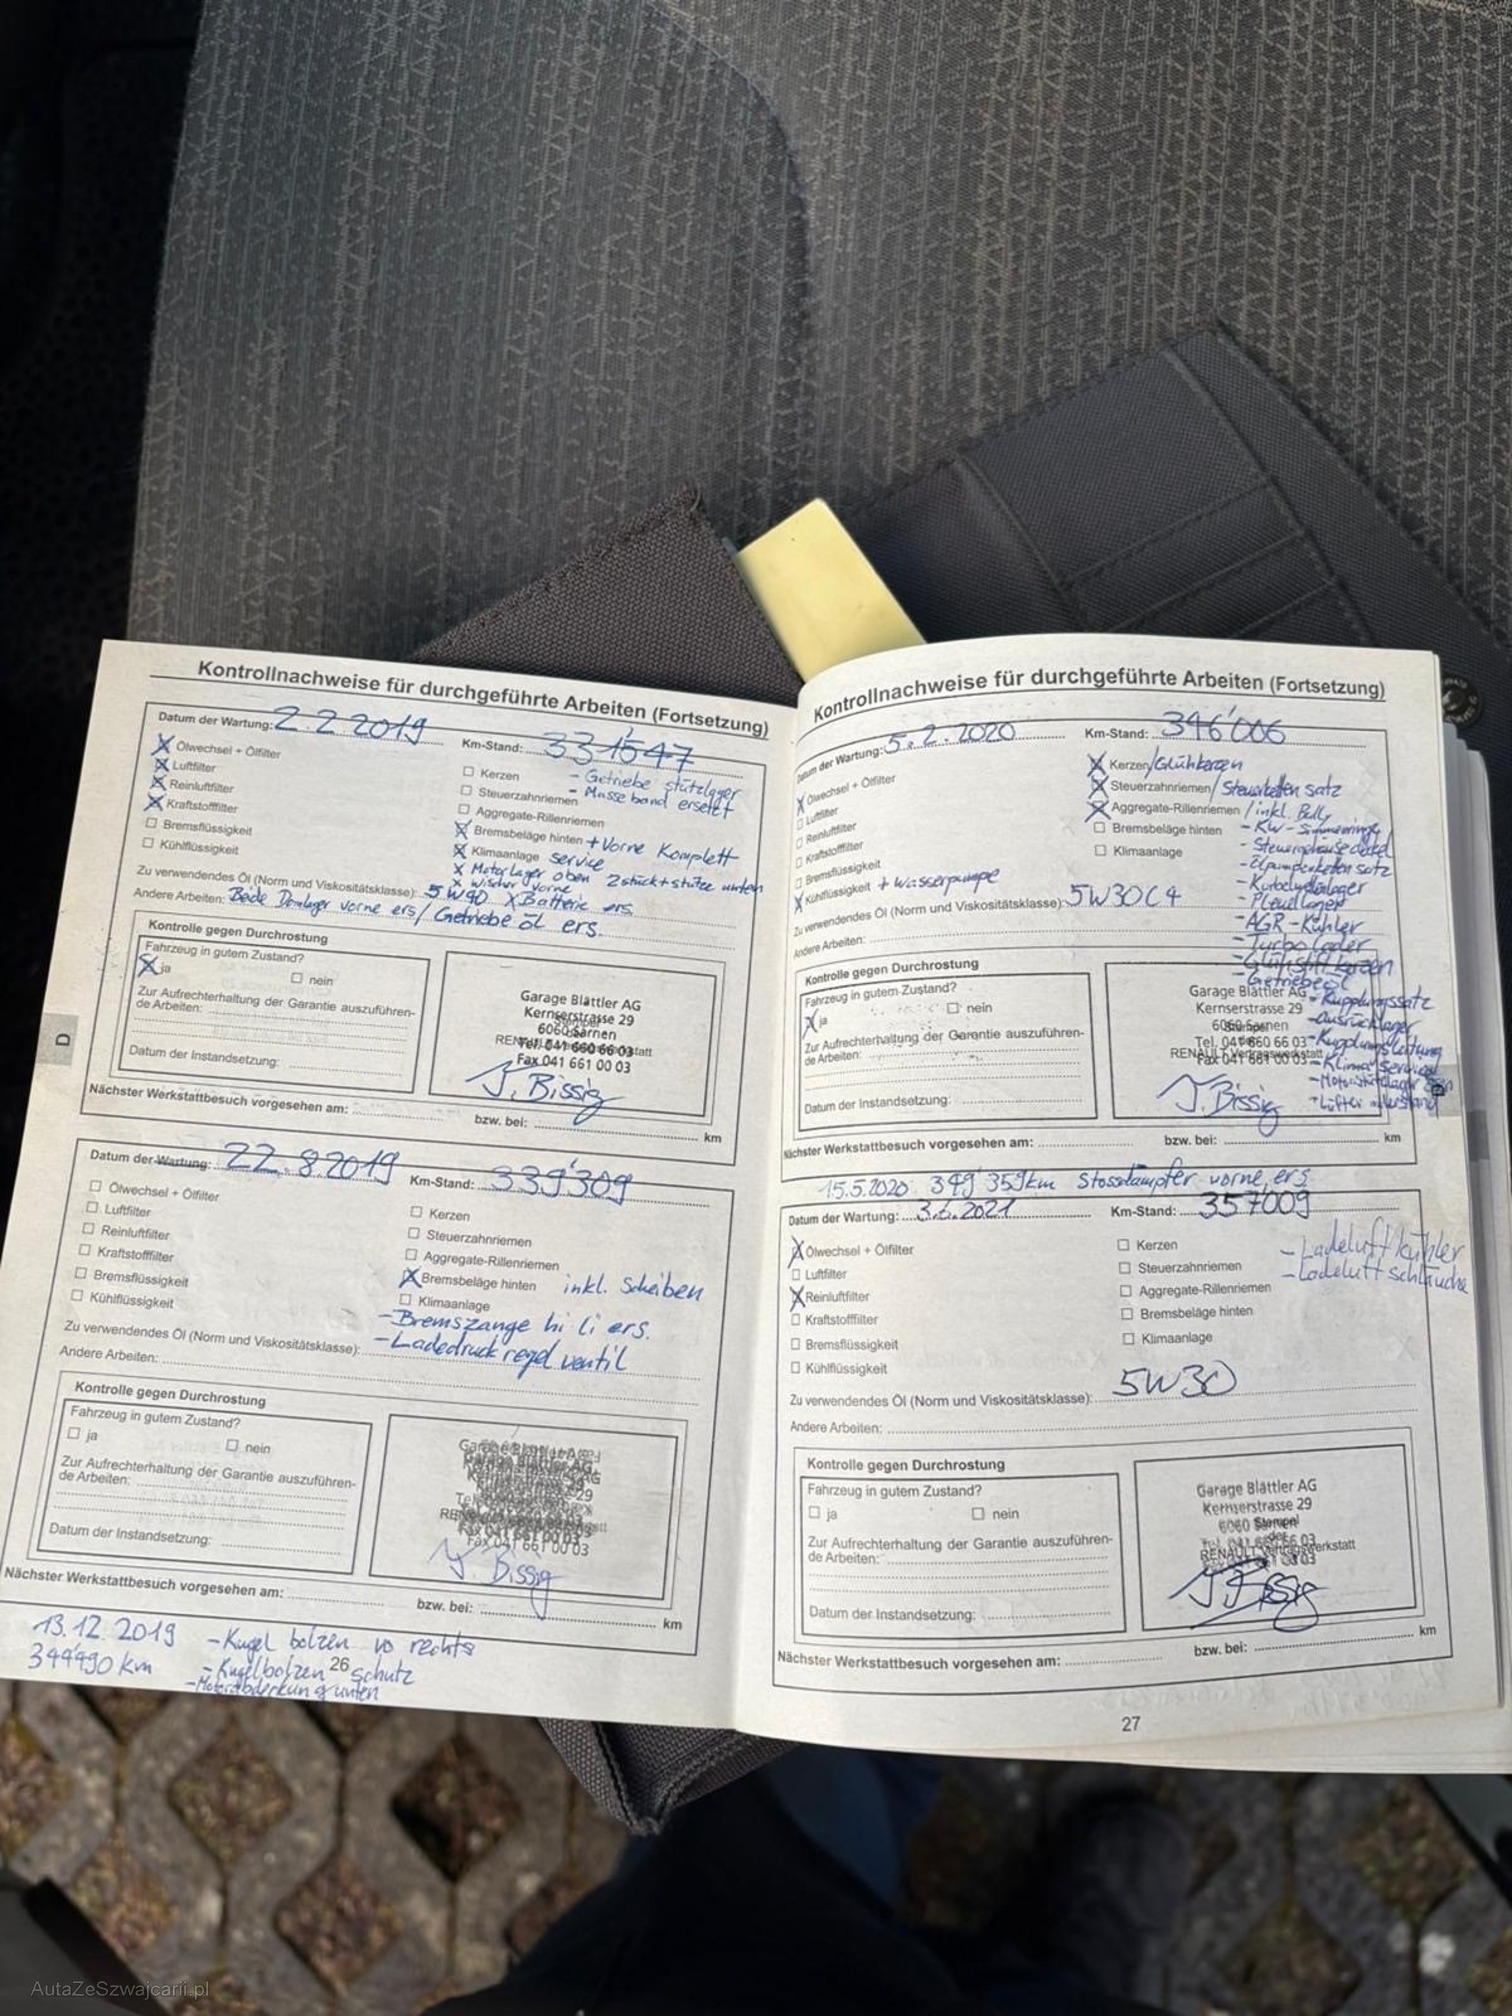 Kontrollnachweise für durchgeführte Arbeiten (Fortsetzung)
Datum der Wartung: 2.2.2019
Km-Stand: 331'547
Ölwechsel + Ölfilter
Luftfilter
Reinluftfilter
Kraftstofffilter
Bremsflüssigkeit
Kühlflüssigkeit
Kerzen - Getriebe stützlager
Steuerzahnriemen - Masseband ersetzt
Aggregate-Rillenriemen
Bremsbeläge hinten + Vorne Komplett
Klimaanlage service
x Motorlager oben 2stück + stütze unten
x Wischer vorne
Zu verwendendes Öl (Norm und Viskositätsklasse): 5W40 X Batterie ers
Andere Arbeiten: Beide Domlager vorne ers / Getriebe öl ers.
Kontrolle gegen Durchrostung
Fahrzeug in gutem Zustand?
ja
nein
Zur Aufrechterhaltung der Garantie auszuführen-
de Arbeiten:
Datum der Instandsetzung:
Garage Blättler AG
Kernserstrasse 29
6060 Sarnen
Tel. 041 660 66 03
Fax 041 661 00 03
J. Bissig
Nächster Werkstattbesuch vorgesehen am:
bzw. bei:
km
Datum der Wartung: 22.8.2019
Km-Stand: 339'309
Ölwechsel + Ölfilter
Luftfilter
Reinluftfilter
Kraftstofffilter
Bremsflüssigkeit
Kühlflüssigkeit
Kerzen
Steuerzahnriemen
Aggregate-Rillenriemen
Bremsbeläge hinten inkl. Scheiben
Klimaanlage
- Bremszange hi li ers.
Zu verwendendes Öl (Norm und Viskositätsklasse): - Ladedruck regel ventil
Andere Arbeiten:
Kontrolle gegen Durchrostung
Fahrzeug in gutem Zustand?
ja
nein
Zur Aufrechterhaltung der Garantie auszuführen-
de Arbeiten:
Datum der Instandsetzung:
Garage Blättler AG
Fax 041 661 00 03
J. Bissig
Nächster Werkstattbesuch vorgesehen am:
bzw. bei:
km
13.12.2019 - Kugel bolzen vo rechts
344'490 km - Kugelbolzen schutz
- Motorabdeckung unten
26
Kontrollnachweise für durchgeführte Arbeiten (Fortsetzung)
Datum der Wartung: 5.2.2020
Km-Stand: 346'006
Ölwechsel + Ölfilter
Luftfilter
Reinluftfilter
Kraftstofffilter
Bremsflüssigkeit
Kühlflüssigkeit + Wasserpumpe
Kerzen / Glühkerzen
Steuerzahnriemen / Steuerketten satz
Aggregate-Rillenriemen / inkl. Pully
Bremsbeläge hinten - KW - Simmeringe
- Steuergehäusedeckel
Klimaanlage - Ölpumpenketten satz
- Kurbelwellenlager
Zu verwendendes Öl (Norm und Viskositätsklasse): 5W30C4 - Pleuellager
- AGR-Kühler
Andere Arbeiten: - Turbolader
- Glühstiftkerzen
- Getriebeöl
- Kupplungssatz
- Ausrücklager
- Kupplungsleitung
- Klimaservice
- Lüfter widerstand
Kontrolle gegen Durchrostung
Fahrzeug in gutem Zustand?
ja
nein
Zur Aufrechterhaltung der Garantie auszuführen-
de Arbeiten:
Datum der Instandsetzung:
Garage Blättler AG
Kernserstrasse 29
6060 Sarnen
Tel. 041 660 66 03
RENAULT Vertragswerkstatt
Fax 041 661 00 03
J. Bissig
Nächster Werkstattbesuch vorgesehen am:
bzw. bei:
km
15.5.2020 349'359km Stossdämpfer vorne ers
Datum der Wartung: 3.6.2021
Km-Stand: 357009
Ölwechsel + Ölfilter
Luftfilter
Reinluftfilter
Kraftstofffilter
Bremsflüssigkeit
Kühlflüssigkeit
Kerzen - Ladeluftkühler
Steuerzahnriemen - Ladeluftschläuche
Aggregate-Rillenriemen
Bremsbeläge hinten
Klimaanlage
Zu verwendendes Öl (Norm und Viskositätsklasse): 5W30
Andere Arbeiten:
Kontrolle gegen Durchrostung
Fahrzeug in gutem Zustand?
ja
nein
Zur Aufrechterhaltung der Garantie auszuführen-
de Arbeiten:
Datum der Instandsetzung:
Garage Blättler AG
Kernserstrasse 29
6060 Sarnen
RENAULT Vertragswerkstatt
J. Bissig
Nächster Werkstattbesuch vorgesehen am:
bzw. bei:
km
27
D
AutaZeSzwajcarii.pl